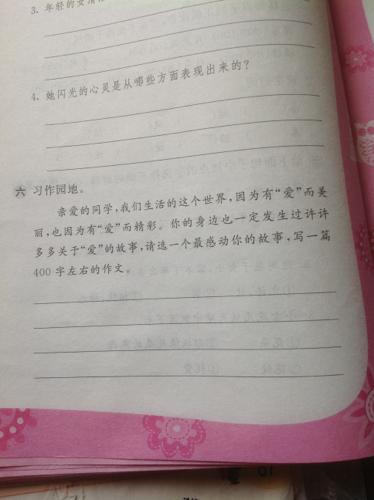 3. 年轻的女清
4. 她闪光的心灵是从哪些方面表现出来的？
六 习作园地。
亲爱的同学，我们生活的这个世界，因为有“爱”而美
丽，也因为有“爱”而精彩。你的身边也一定发生过许许
多多关于“爱”的故事，请选一个最感动你的故事，写一篇
400 字左右的作文。